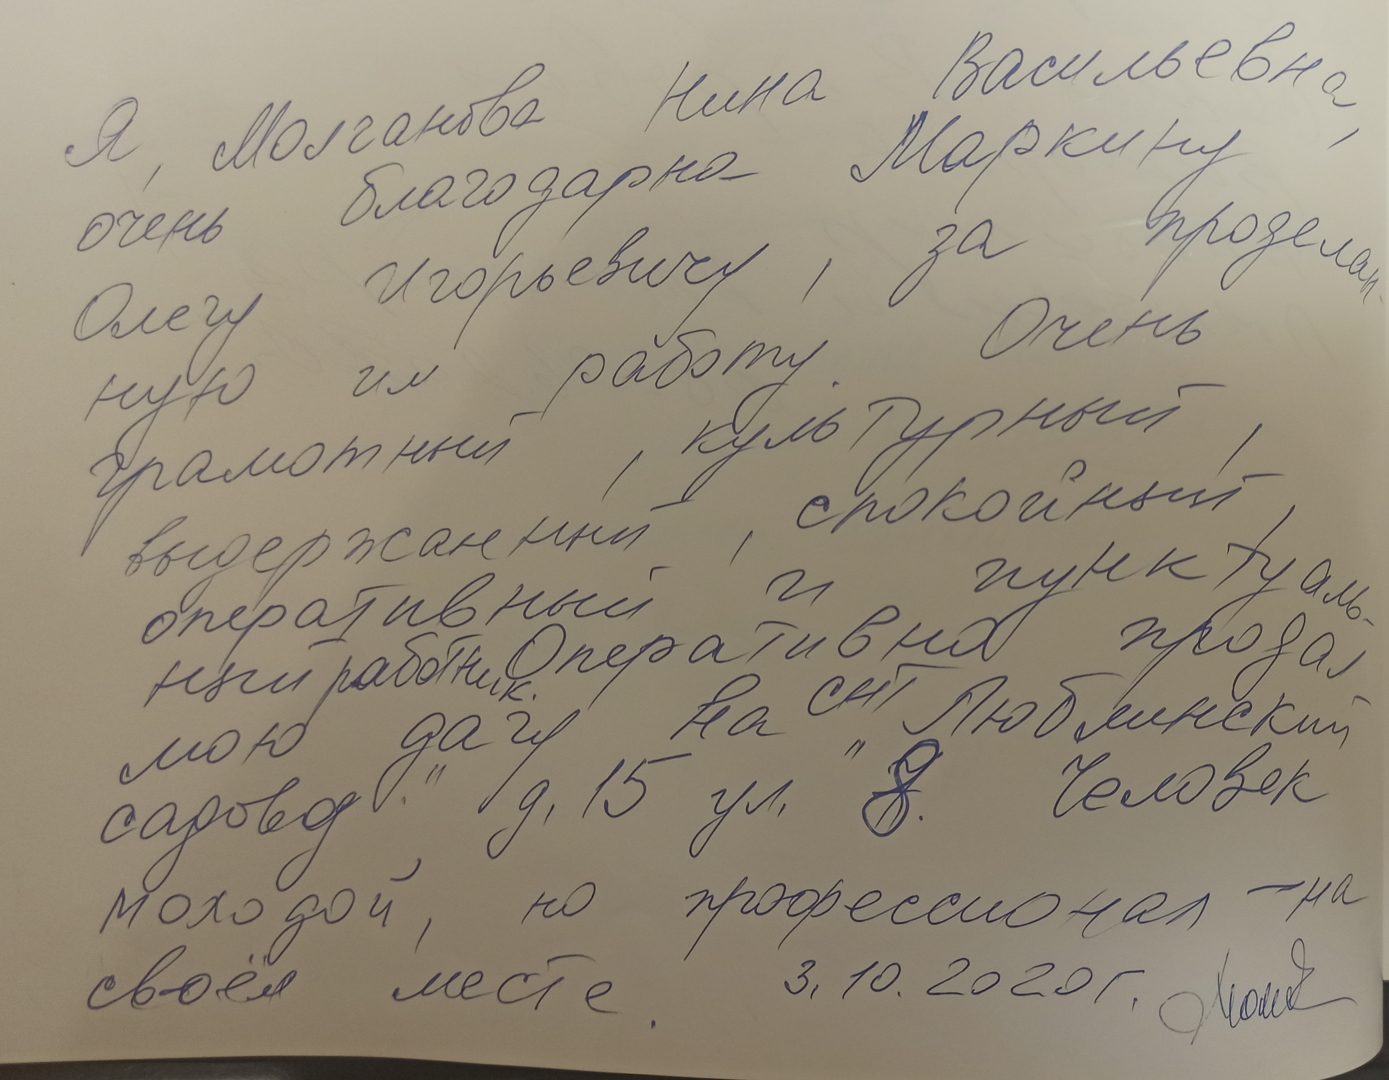 Я, Молганова Нина Васильевна,
очень благодарна Маркину
Олегу Игорьевичу, за проделан-
ную им работу. Очень
грамотный, культурный,
выдержанный, спокойный,
оперативный и пунктуаль-
ный работник. Оперативно продал
мою дачу на СНТ Люблинский
садовод." д. 15 ул. "8. Человек
молодой, но профессионал - на
своём месте. 3.10.2020г.